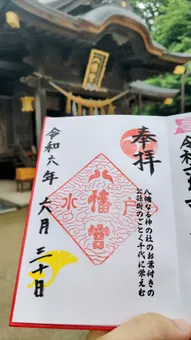 奉拝
八幡なる神の社のお葉付きの
公孫樹のごとく千代に栄えむ
水戸
八幡宮
令和六年
六月
三十日
令和六